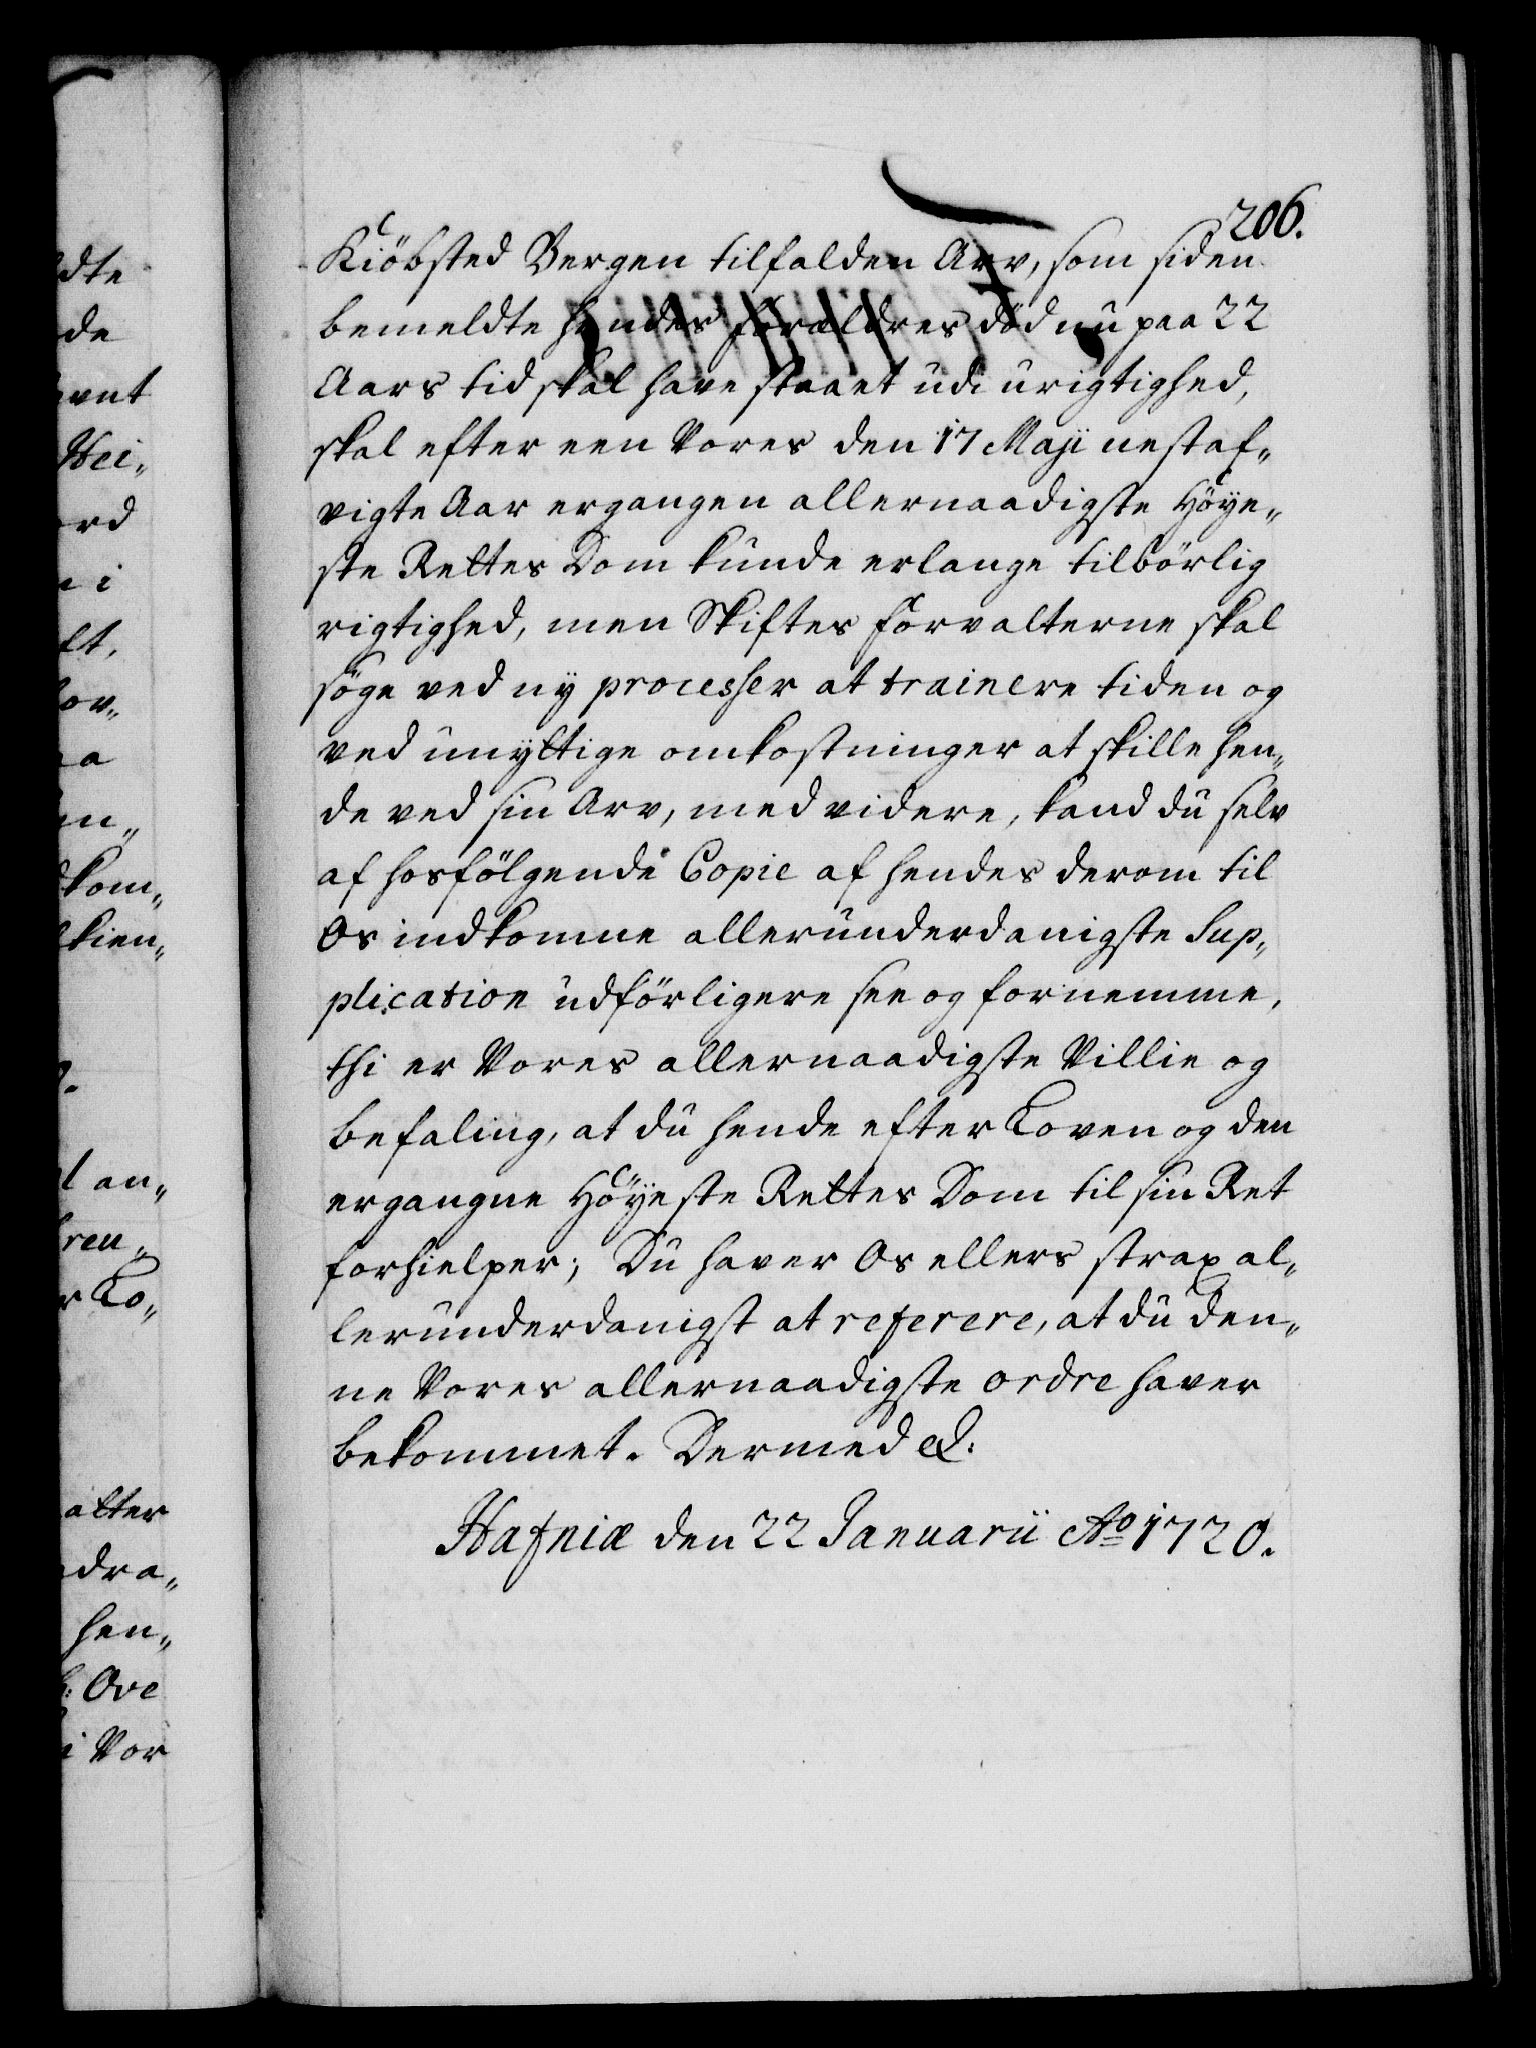 206.
Kiöbsted Bergen tilfalden Arv, som siden
bemeldte hendes forældres död nu paa 22
Aars tid skal have staaet udi urigtighed,
skal efter een Vores den 17 Maji nestaf„
vigte Aar ergangen allernaadigste Höye„
ste Rettes Dom kunde erlange tilbörlig
rigtighed, men Skiftes forvalterne skal
söge ved ny processer at trainere tiden og
ved unyttige omkostninger at skille hen„
de ved sin Arv, med videre, kand du selv
af hosfölgende Copie af hendes derom til
Os indkomne allerunderdanigste Sup„
plication udförligere see og fornemme,
thi er Vores allernaadigste Villie og
befaling, at du hende efter Loven og den
ergangne Höyeste Rettes Dom til sin Ret
forhielper; Du haver Os ellers strax al„
lerunderdanigst at referere, at du den„
ne Vores allernaadigste ordre haver
bekommet. Dermed &.
Hafniæ den 22 Januarii Ao 1720.